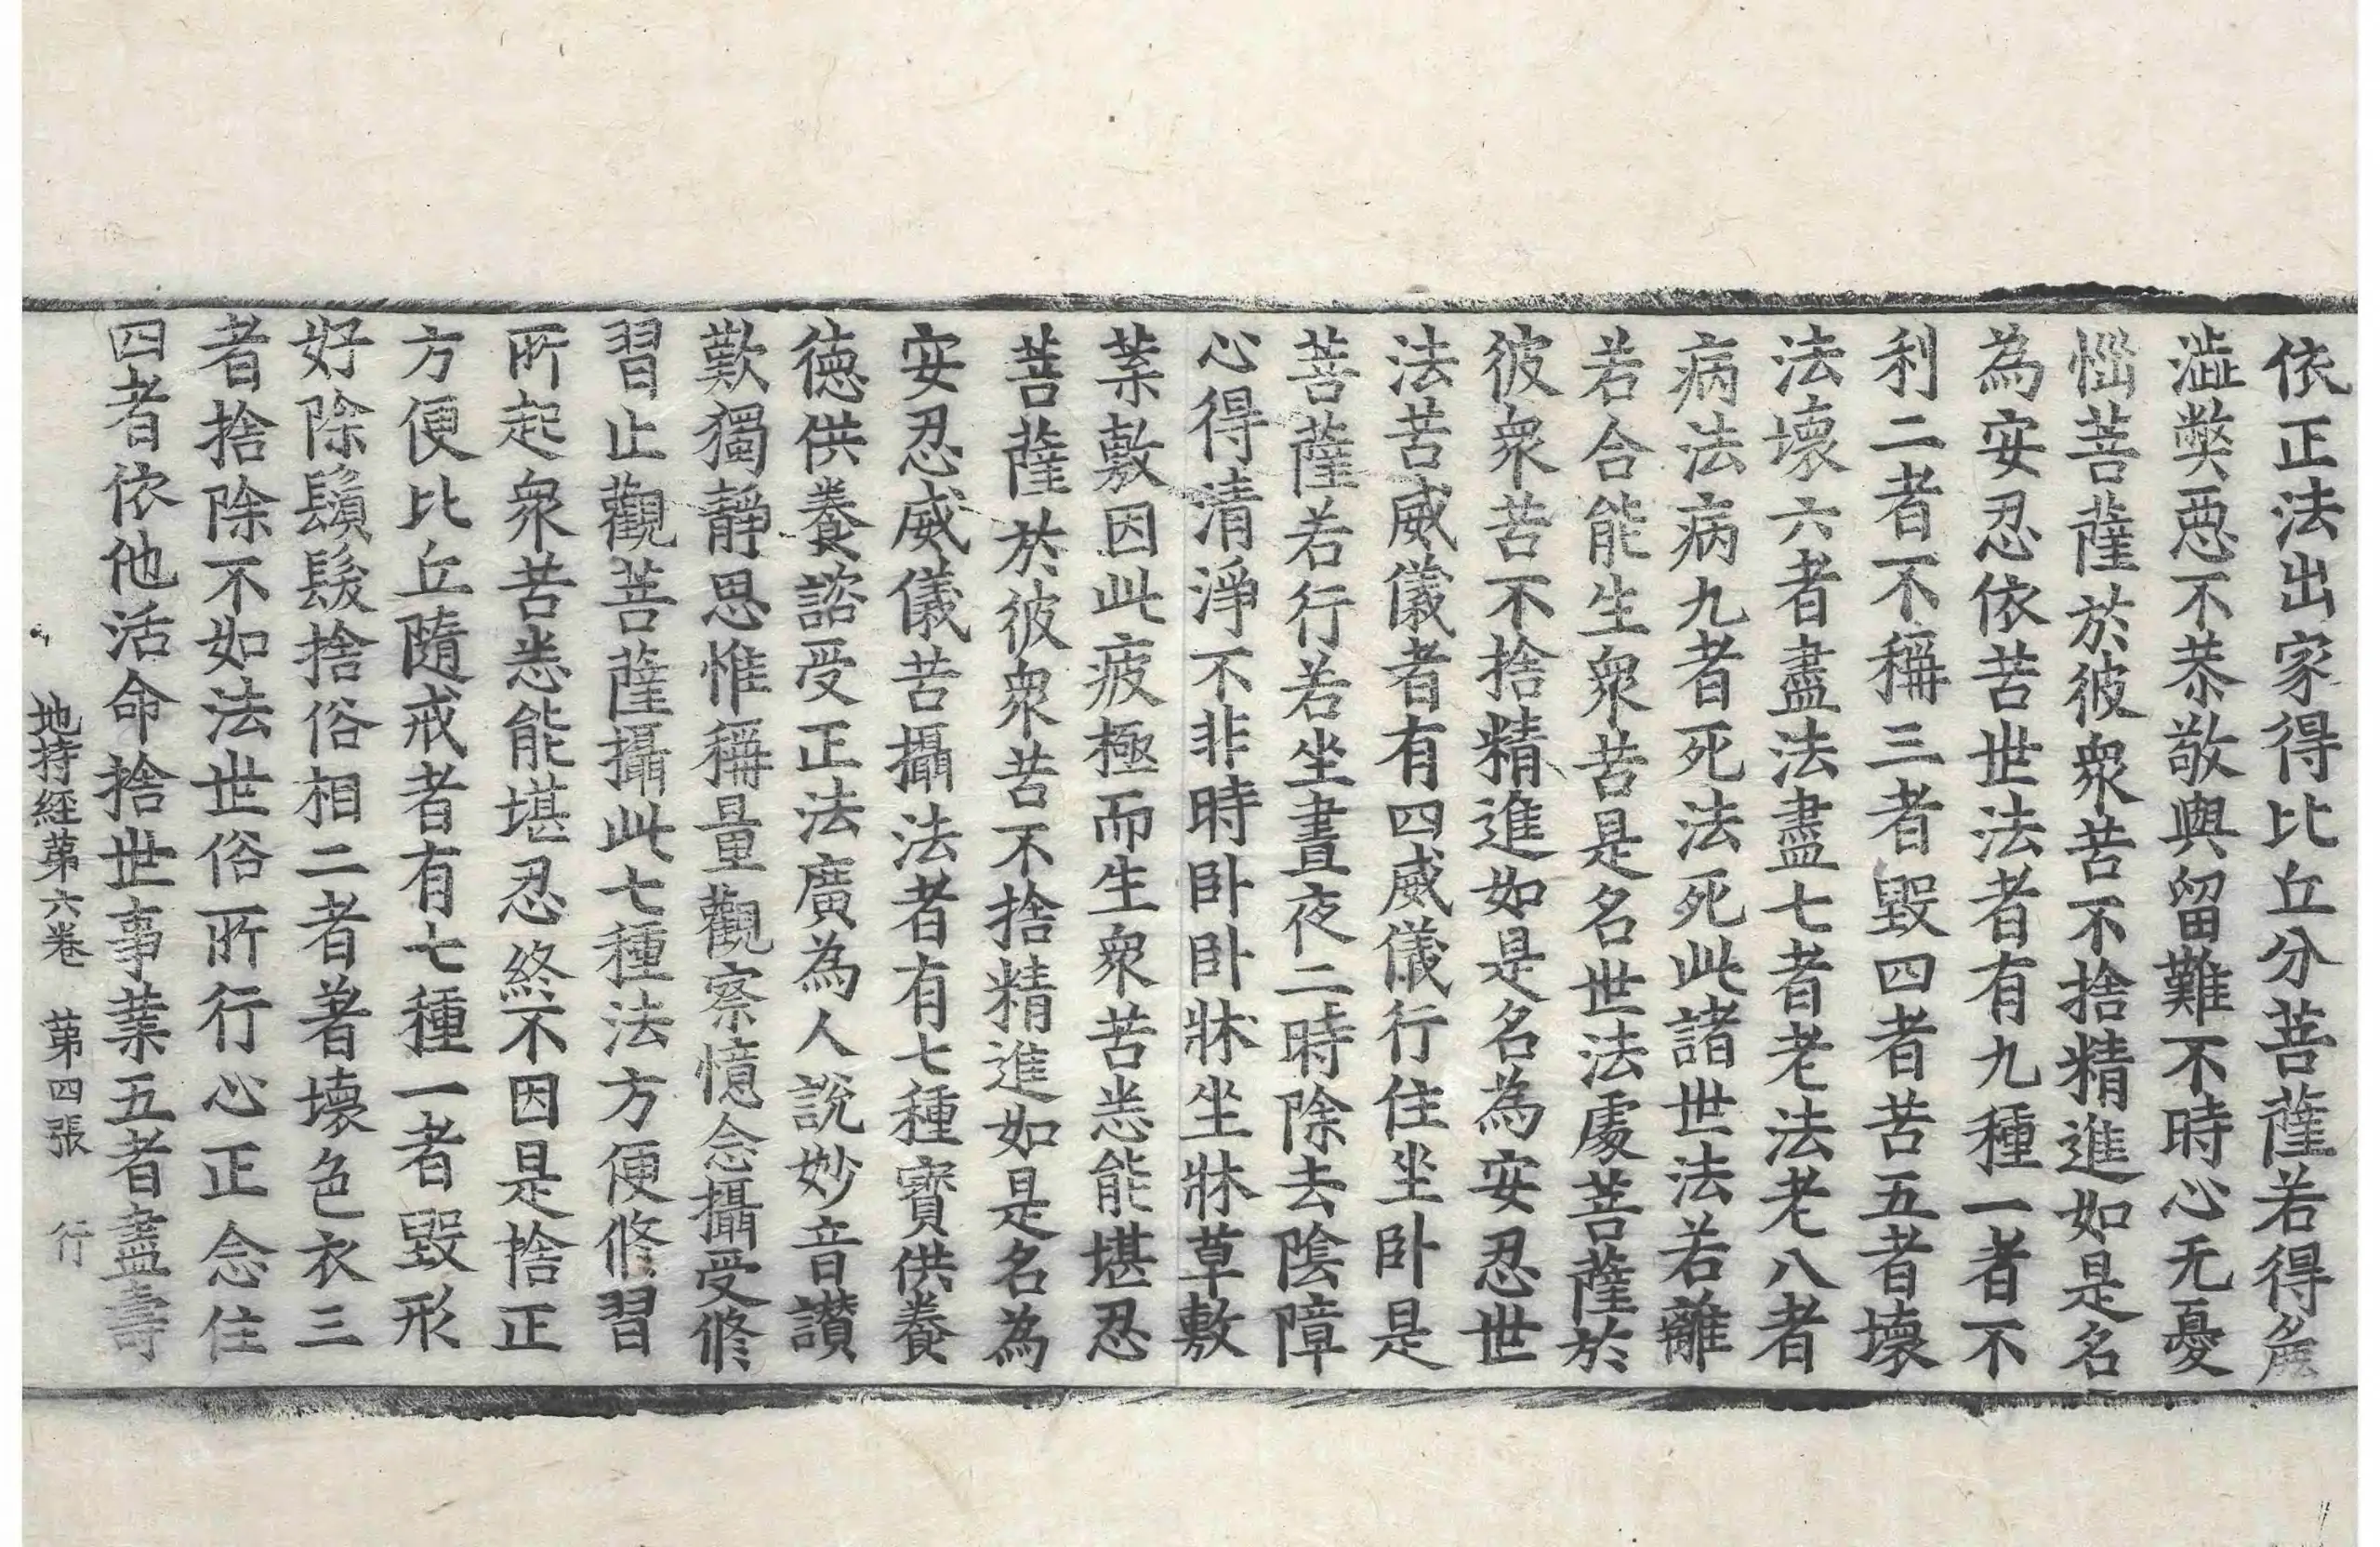 依正法出家得比丘分菩薩若得麁
澁弊惡不恭敬與留難不時心无憂
惱菩薩於彼衆苦不捨精進如是名
為安忍依苦世法者有九種一者不
利二者不稱三者毀四者苦五者壞
法壞六者盡法盡七者老法老八者
病法病九者死法死此諸世法若離
若合能生衆苦是名世法處菩薩於
彼衆苦不捨精進如是名為安忍世
法苦威儀者有四威儀行住坐卧是
菩薩若行若坐晝夜二時除去陰障
心得清淨不非時卧卧牀坐牀草敷
葉敷因此疲極而生衆苦悉能堪忍
菩薩於彼衆苦不捨精進如是名為
安忍威儀苦攝法者有七種寶供養
德供養諮受正法廣為人說妙音讚
歎獨靜思惟稱量觀察憶念攝受修
習止觀菩薩攝此七種法方便修習
所起衆苦悉能堪忍終不因是捨正
方便比丘隨戒者有七種一者毀形
好除鬚髮捨俗相二者著壞色衣三
者捨除不如法世俗所行心正念住
四者依他活命捨世事業五者盡壽
地持經第六卷 第四張 行